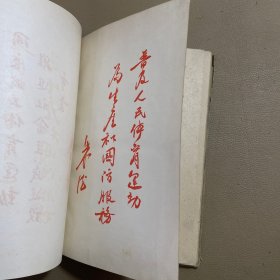 普及人民体育运动
为生產和国防服務
朱德